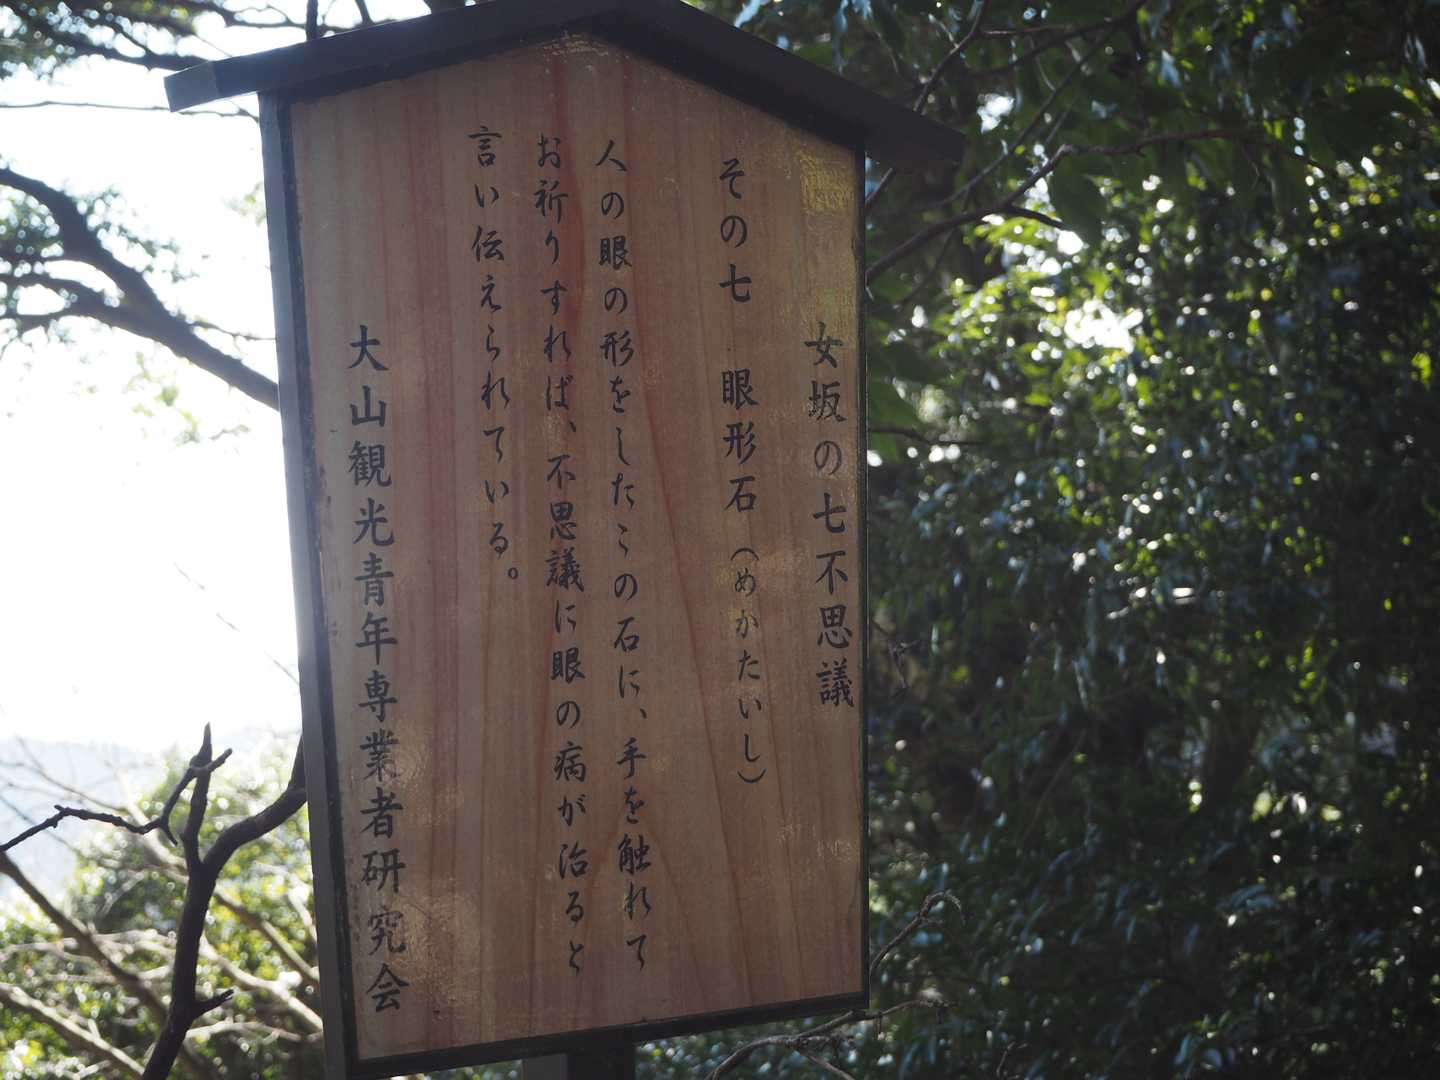 女坂の七不思議
その七　眼形石（めかたいし）
人の眼の形をしたこの石に、手を触れて
お祈りすれば、不思議に眼の病が治ると
言い伝えられている。
大山観光青年専業者研究会